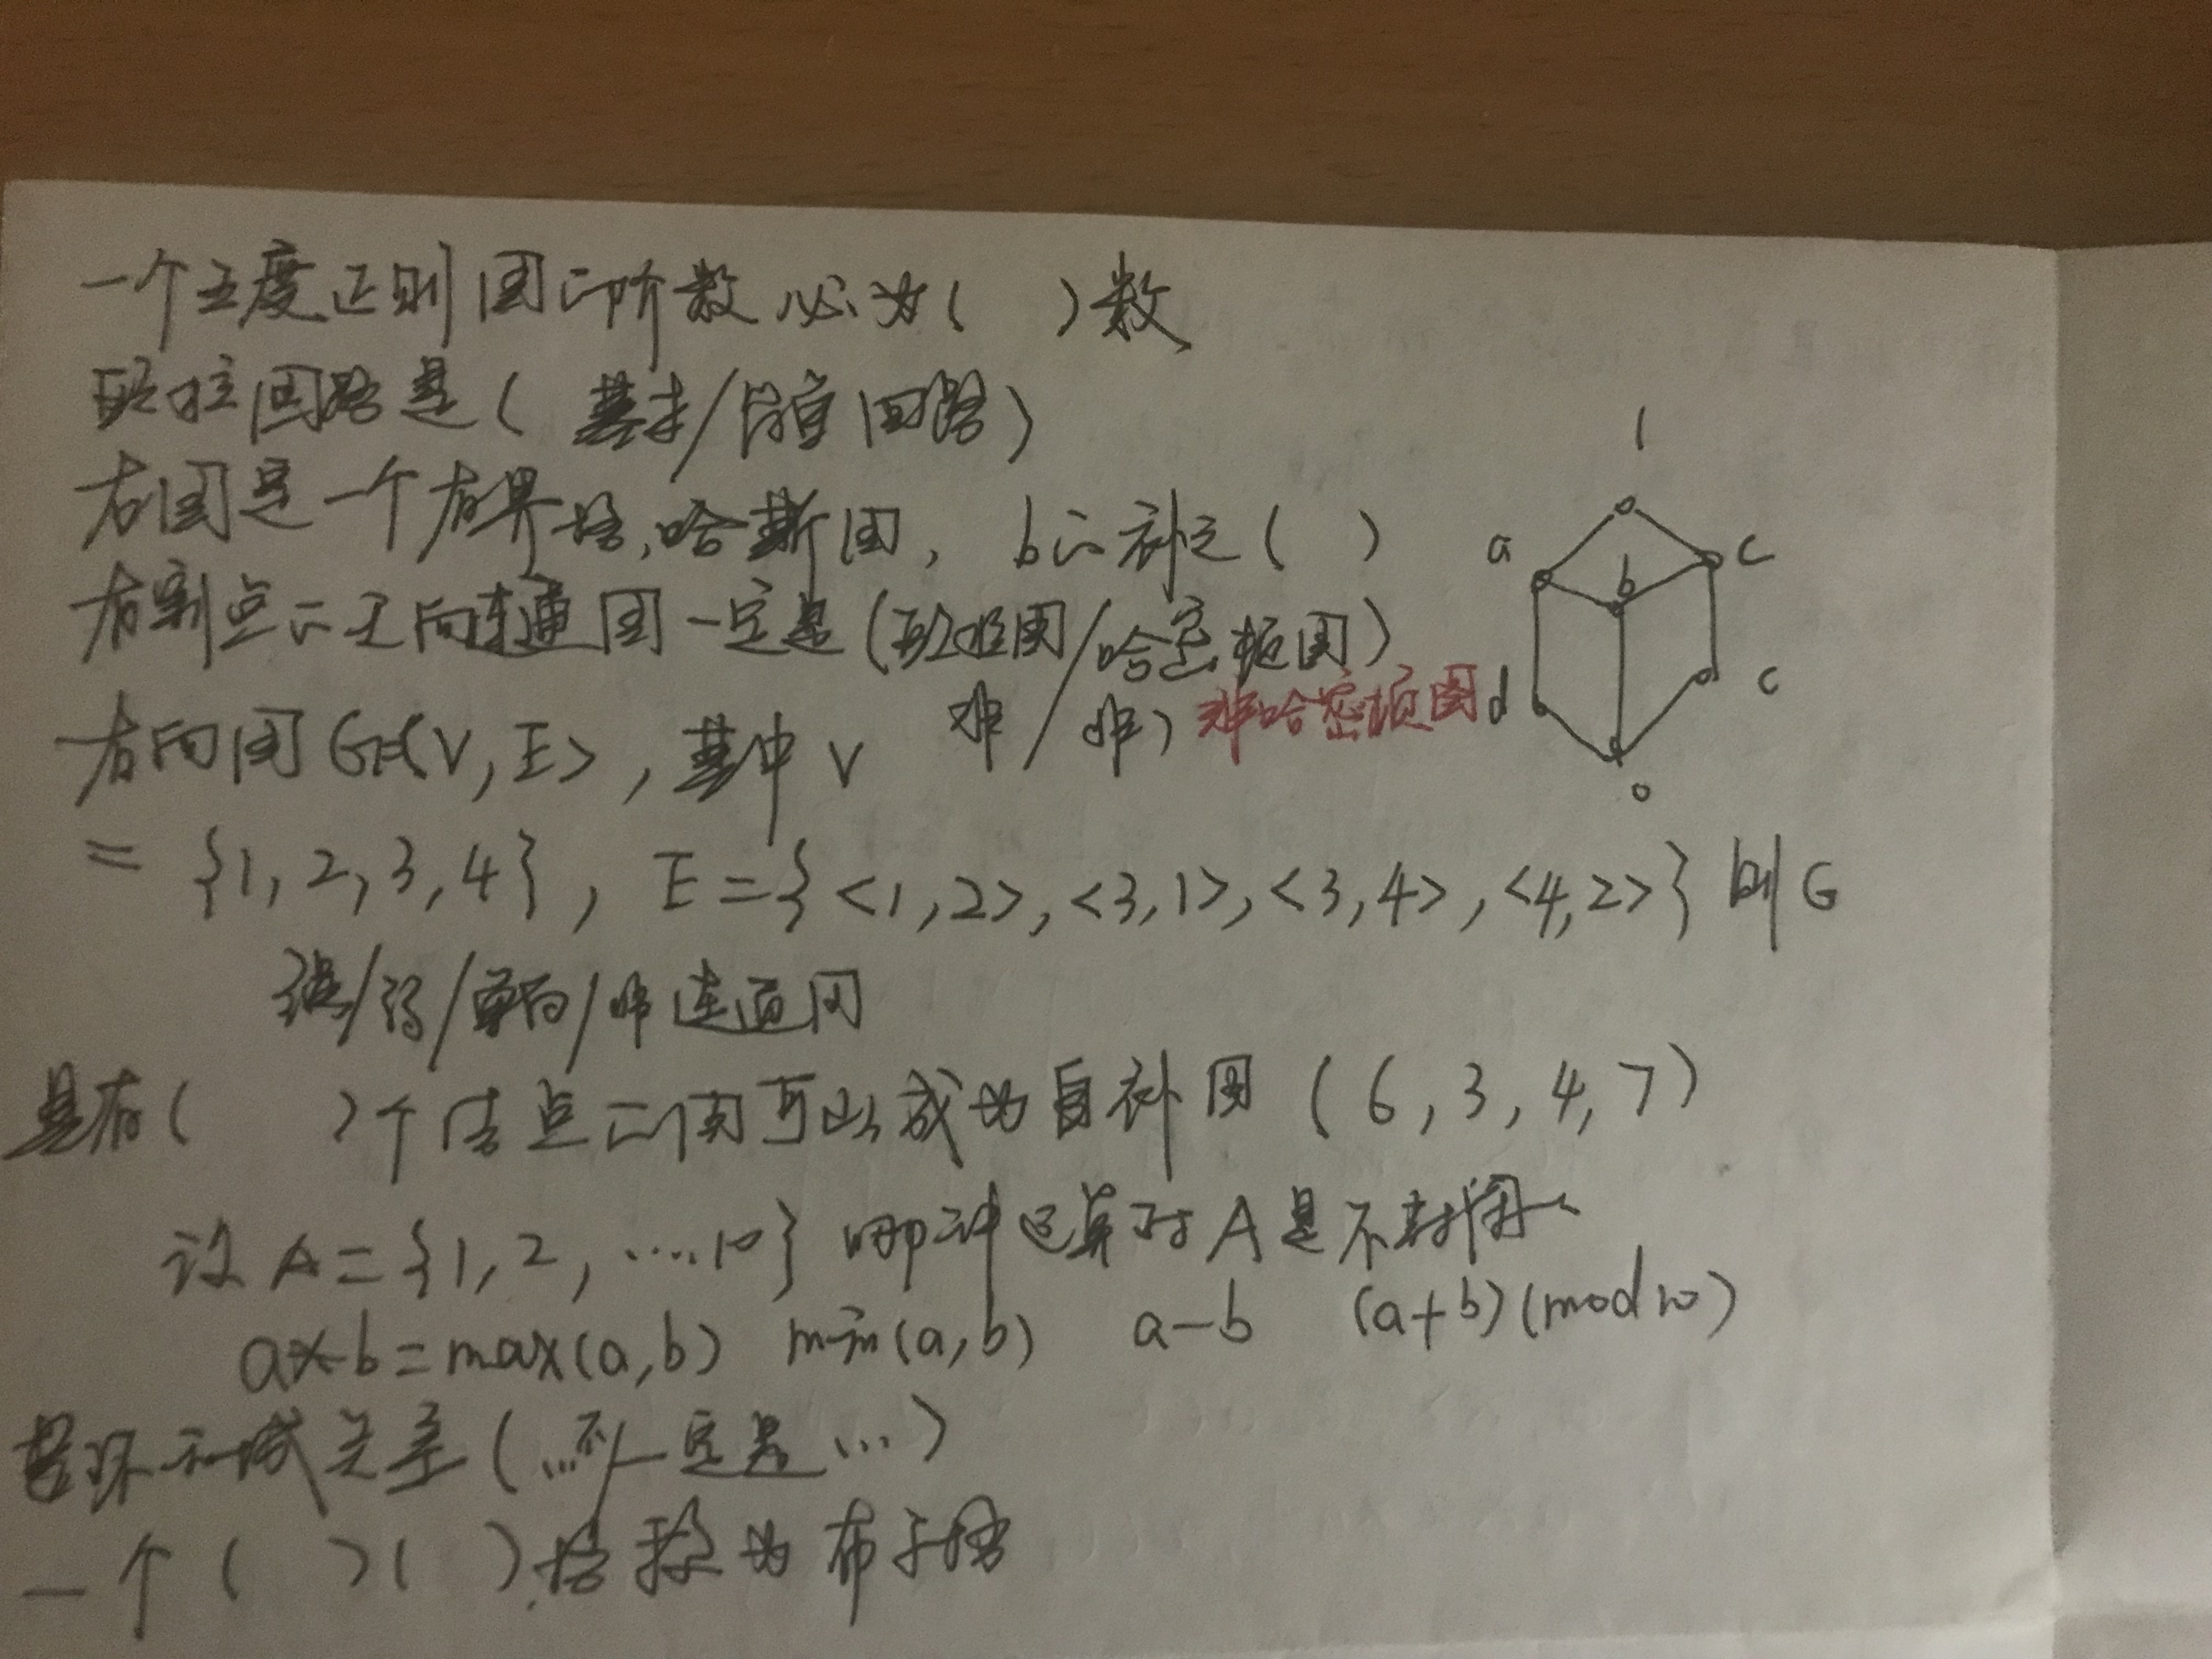 一个五度正则图的阶数必为( )数
欧拉回路是(基本/简单回路)
右图是一个有界格,哈斯图,b的补元( )
有割点的无向连通图一定是(欧拉图/哈密顿图)
非/非) 非哈密顿图
有向图G=<V,E>,其中V
={1,2,3,4},E={<1,2>,<3,1>,<3,4>,<4,2>}则G
强/弱/单向/非连通图
具有( )个结点的图可以成为自补图(6,3,4,7)
设A={1,2,....10}哪种运算对A是不封闭的
a*b=max(a,b) min(a,b) a-b (a+b)(mod10)
环和域关系(...不/一定是...)
一个( )( )格称为布尔格
1
a
b
c
d
c
0